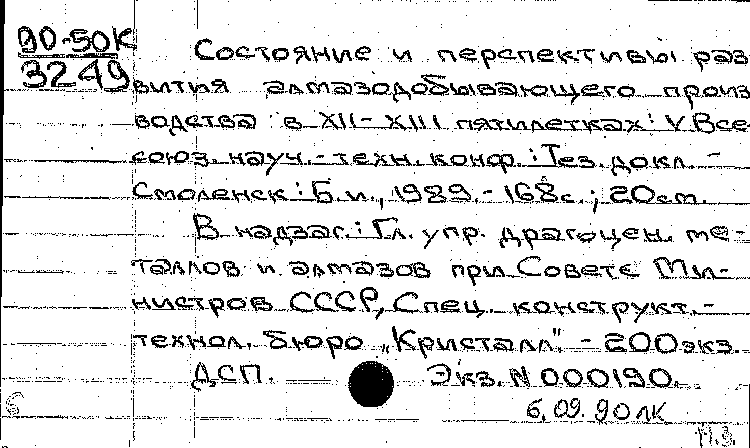 90-50К
3249
Состояние и перспективы раз
вития алмазодобывающего произ
водства в XII-XIII пятилетках: V Все
союз. науч.-техн. конф.: Тез. докл. -
Смоленск: Б.и., 1989. - 168с.; 20см.
В надзаг.: Гл. упр. драгоцен. ме-
таллов и алмазов при Совете Ми-
нистров СССР, Спец. конструкт.-
технол. бюро „Кристалл". - 200экз.
ДСП. Экз. N 000190.
6.09.90 ЛК